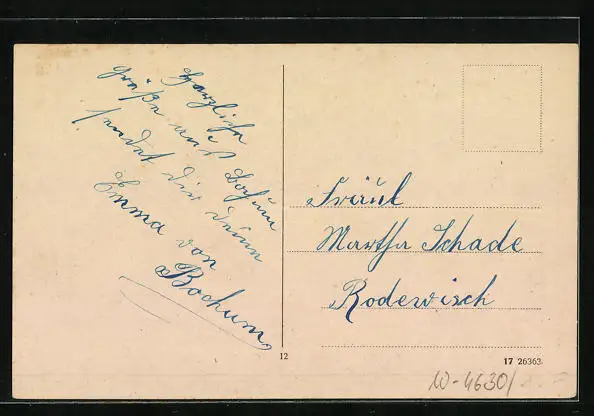 Herzliche
Grüße aus Bochum
sendet dir deine
Emma von
Bochum
Fräul
Martha Schade
Rodewisch
12
17 26363
W-4630/